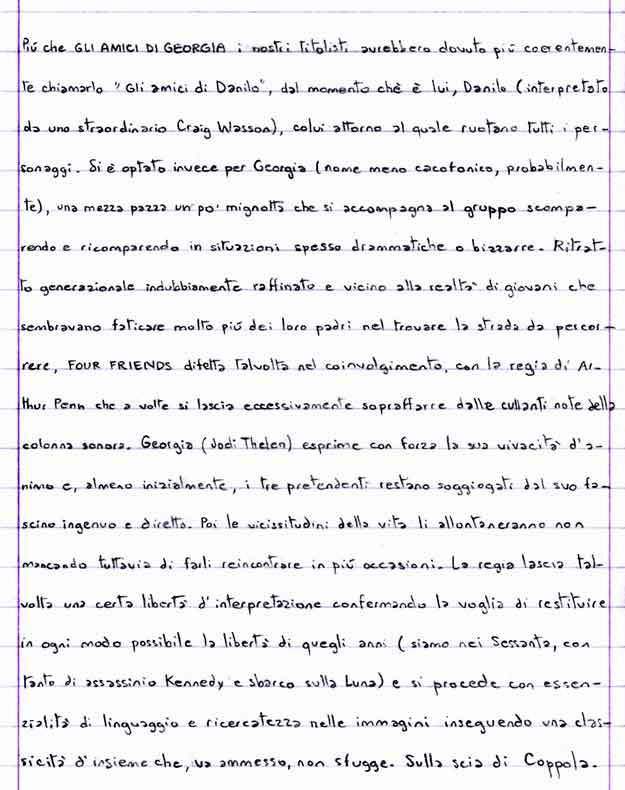 Più che GLI AMICI DI GEORGIA i nostri titolisti avrebbero dovuto più coerentemen-
te chiamarlo "Gli amici di Danilo", dal momento chè è lui, Danilo (interpretato
da uno straordinario Craig Wasson), colui attorno al quale ruotano tutti i per-
sonaggi. Si è optato invece per Georgia (nome meno cacofonico, probabilmen-
te), una mezza pazza un po' mignotta che si accompagna al gruppo scompa-
rendo e ricomparendo in situazioni spesso drammatiche o bizzarre. Ritrat-
to generazionale indubbiamente raffinato e vicino alla realtà di giovani che
sembravano faticare molto più dei loro padri nel trovare la strada da percor-
rere, FOUR FRIENDS difetta talvolta nel coinvolgimento, con la regia di Ar-
thur Penn che a volte si lascia eccessivamente sopraffarre dalle cullanti note della
colonna sonora. Georgia (Jodi Thelen) esprime con forza la sua vivacità d'a-
nimo e, almeno inizialmente, i tre pretendenti restano soggiogati dal suo fa-
scino ingenuo e diretto. Poi le vicissitudini della vita li allontaneranno non
mancando tuttavia di farli reincontrare in più occasioni. La regia lascia tal-
volta una certa libertà d'interpretazione confermando la voglia di restituire
in ogni modo possibile la libertà di quegli anni (siamo nei Sessanta, con
tanto di assassinio Kennedy e sbarco sulla Luna) e si procede con essen-
zialità di linguaggio e ricercatezza nelle immagini inseguendo una clas-
sicità d'insieme che, va ammesso, non sfugge. Sulla scia di Coppola.